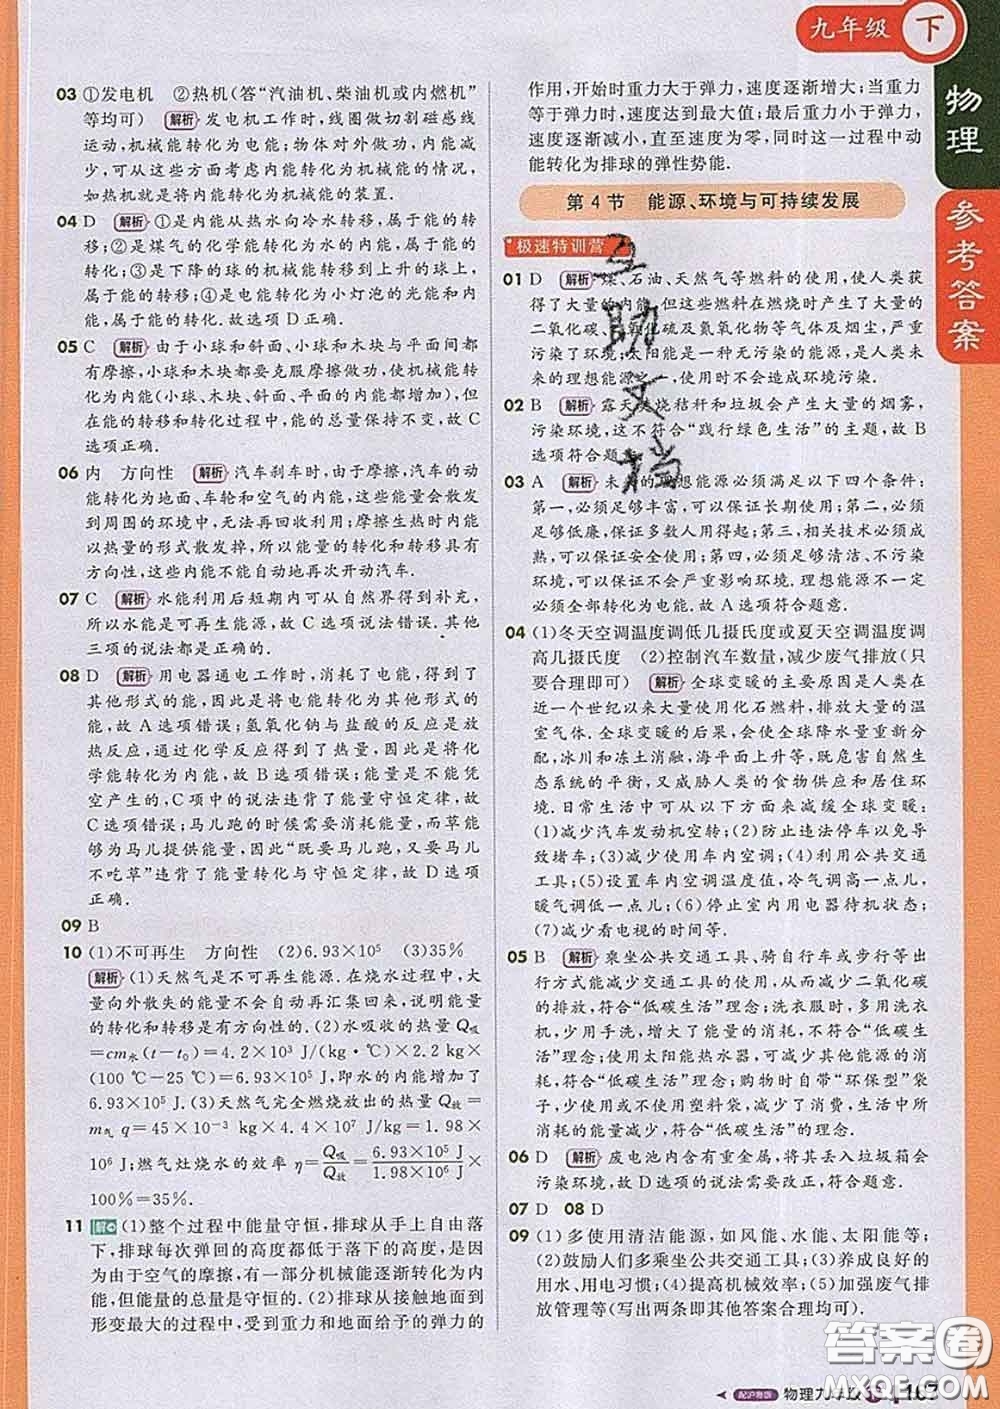 九年级 下
物理
参考答案
03 ①发电机 ②热机(答“汽油机、柴油机或内燃机”
等均可) 解析 发电机工作时,线圈做切割磁感线
运动,机械能转化为电能;物体对外做功,内能减
少,可以这些方面考虑内能转化为机械能的情景,
如热机就是将内能转化为机械能的装置.
04 D 解析 ①是内能从热水向冷水转移,属于能的转
移;②是煤气的化学能转化为水的内能,属于能的
转化;③是下降的球的机械能转移到上升的球上,
属于能的转移;④是电能转化为小灯泡的光能和内
能,属于能的转化.故选项D正确.
05 C 解析 由于小球和斜面、小球和木块与平面间都
有摩擦,小球和木块都要克服摩擦做功,使机械能
转化为内能(小球、木块、斜面、平面的内能增加),但
在能的转移和转化过程中,能的总量保持不变.故C
选项正确.
06 内 方向性 解析 汽车刹车时,由于摩擦,汽车的动
能转化为地面、车轮和空气的内能,这些内能会散发
到周围的环境中,无法再回收利用;摩擦生热时内能
以热量的形式散发掉,所以能量的转化和转移具有
方向性,这些内能不能自动地再次开动汽车.
07 C 解析 水能利用后短期内可从自然界得到补充,
所以水能是可再生能源,故C选项说法错误.其他
三项的说法都是正确的.
08 D 解析 用电器通电工作时,消耗了电能,电能转化
为其他形式的能,因此是将电能转化为其他形式的
能,故A选项错误;氢氧化钠与盐酸的反应是放
热反应,通过化学反应得到了热量,因此是将化
学能转化为内能,故B选项错误;能量是不能凭
空产生的,C项中的说法违背了能量守恒定律,故
C选项错误;马儿跑的时候需要消耗能量,而草能
够为马儿提供能量,因此“既要马儿跑,又要马儿
不吃草”违背了能量转化与守恒定律,故D选项
正确.
09 B
10 (1)不可再生 方向性 (2)6.93×10⁵ (3)35%
解析 (1)天然气是不可再生能源.在烧水过程中,大
量向外散失的能量不会自动再汇集回来,说明能量
的转化和转移是有方向性的.(2)水吸收的热量Q吸
=cm水(t-t₀)=4.2×10³ J/(kg·℃)×2.2 kg×
(100℃-25℃)=6.93×10⁵ J,即水的内能增加了
6.93×10⁵ J.(3)天然气完全燃烧放出的热量Q放=
m气 q=45×10⁻³ kg×4.4×10⁷ J/kg=1.98×
10⁶ J;燃气灶烧水的效率 η=Q吸/Q放=6.93×10⁵ J/1.98×10⁶ J×
100%=35%.
11 解 (1)整个过程中能量守恒,排球从手上自由落
下,排球每次弹回的高度都低于落下的高度,是因
为由于空气的摩擦,有一部分机械能逐渐转化为内
能,但能量的总量是守恒的.(2)排球从接触地面到
形变最大的过程中,受到重力和地面给予的弹力的
作用,开始时重力大于弹力,速度逐渐增大;当重力
等于弹力时,速度达到最大值;最后重力小于弹力,
速度逐渐减小,直至速度为零,同时这一过程中动
能转化为排球的弹性势能.
第4节 能源、环境与可持续发展
极速特训营
01 D 解析 煤、石油、天然气等燃料的使用,使人类获
得了大量的内能,但这些燃料在燃烧时产生了大量的
二氧化碳、二氧化硫及氮氧化物等气体及烟尘,严重
污染了环境;太阳能是一种无污染的能源,是人类未
来的理想能源之一,不会造成环境污染.
02 B 解析 露天焚烧秸秆和垃圾会产生大量的烟雾,
污染环境,这不符合“践行绿色生活”的主题,故B
选项符合题意.
03 A 解析 未来的理想能源必须满足以下四个条件:
第一,必须足够丰富,可以保证长期使用;第二,必须
足够低廉,保证多数人用得起;第三,相关技术必须成
熟,可以保证安全使用;第四,必须足够清洁、不污染
环境,可以保证不会严重影响环境.理想能源不一定
必须全部转化为电能.故A选项符合题意.
04 (1)冬天空调温度调低几摄氏度或夏天空调温度调
高几摄氏度 (2)控制汽车数量,减少废气排放(只
要合理即可) 解析 全球变暖的主要原因是人类在
近一个世纪以来大量使用化石燃料,排放大量的温
室气体.全球变暖的后果,会使全球降水量重新分
配,冰川和冻土消融,海平面上升等,既危害自然生
态系统的平衡,又威胁人类的食物供应和居住环
境.日常生活中可以从以下方面来减缓全球变暖:
(1)减少汽车发动机空转;(2)防止违法停车以免会
导致堵车;(3)减少使用车内空调;(4)利用公共交通
工具;(5)设置车内空调温度值,冷气调高一点儿,
暖气调低一点儿;(6)停止室内用电器待机状态;
(7)减少看电视的时间等.
05 B 解析 乘坐公共交通工具、骑自行车或步行等出
行方式能减少交通工具的使用,从而减少二氧化碳
的排放,符合“低碳生活”理念;洗衣服时,多用洗衣
机,少用手洗,增大了能量的消耗,不符合“低碳生
活”理念;使用太阳能热水器,可减少其他能源的消
耗,符合“低碳生活”理念;购物时自带“环保型”袋
子,少用或不用一次性塑料袋,减少了消费,生活中
消耗的能量减少,符合“低碳生活”的理念.
06 D 解析 废电池内含有重金属,将其混入垃圾箱会
污染环境,故D选项的做法不可取.
07 D 08 D
09 (1)多使用清洁能源,如风能、水能、太阳能等;
(2)鼓励人们多乘坐公共交通工具;(3)养成良好的
用水、用电习惯;(4)提高机械效率;(5)加强废气排
放管理等(写出两条即其他答案合理均可).
互助文档
配沪粤版 物理九年级 167
答案圈
MXQE.COM